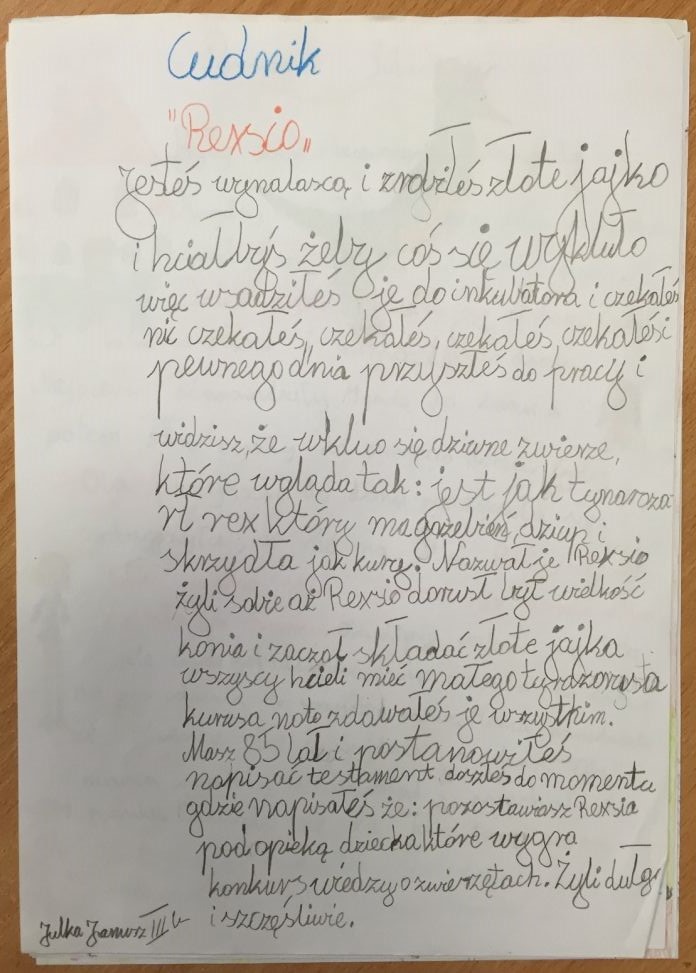 Cudnik
"Rexsio"
Jesteś wynalascą i zrobiłeś złote jajko
i hciałbyś żeby coś się wykluło
więc wsadziłeś je do inkubatora i czekałeś
nic czekałeś, czekałeś, czekałeś, czekałeś i
pewnego dnia przyszłeś do pracy i
widzisz, że wkluo się dziwne zwierze,
które wgląda tak: jest jak tynaroza
rł rex który ma grzebień, dziup i
skrzydła jak kury. Nazwał je Rexsio
żyli sobie aż Rexsio dorusł był wielkość
konia i zaczoł składać złote jajka
wszyscy hcieli mieć małego tyrdzorusta
kurusa noto zdawałeś je wszystkim.
Masz 85 lat i postanowiłeś
napisać testament doszłeś do momentu
gdzie napisałeś że: pozostawiasz Rexsia
pod opieką dziecka które wygra
konkurs wiedzy o zwierzętach. Żyli długo
i szczęśliwie.
Julka Janusz III b